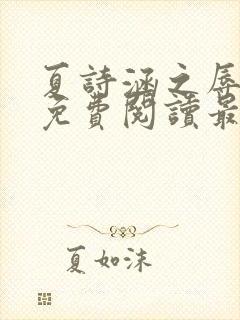 夏詩涵之辱
免費閱讀最
夏如沫